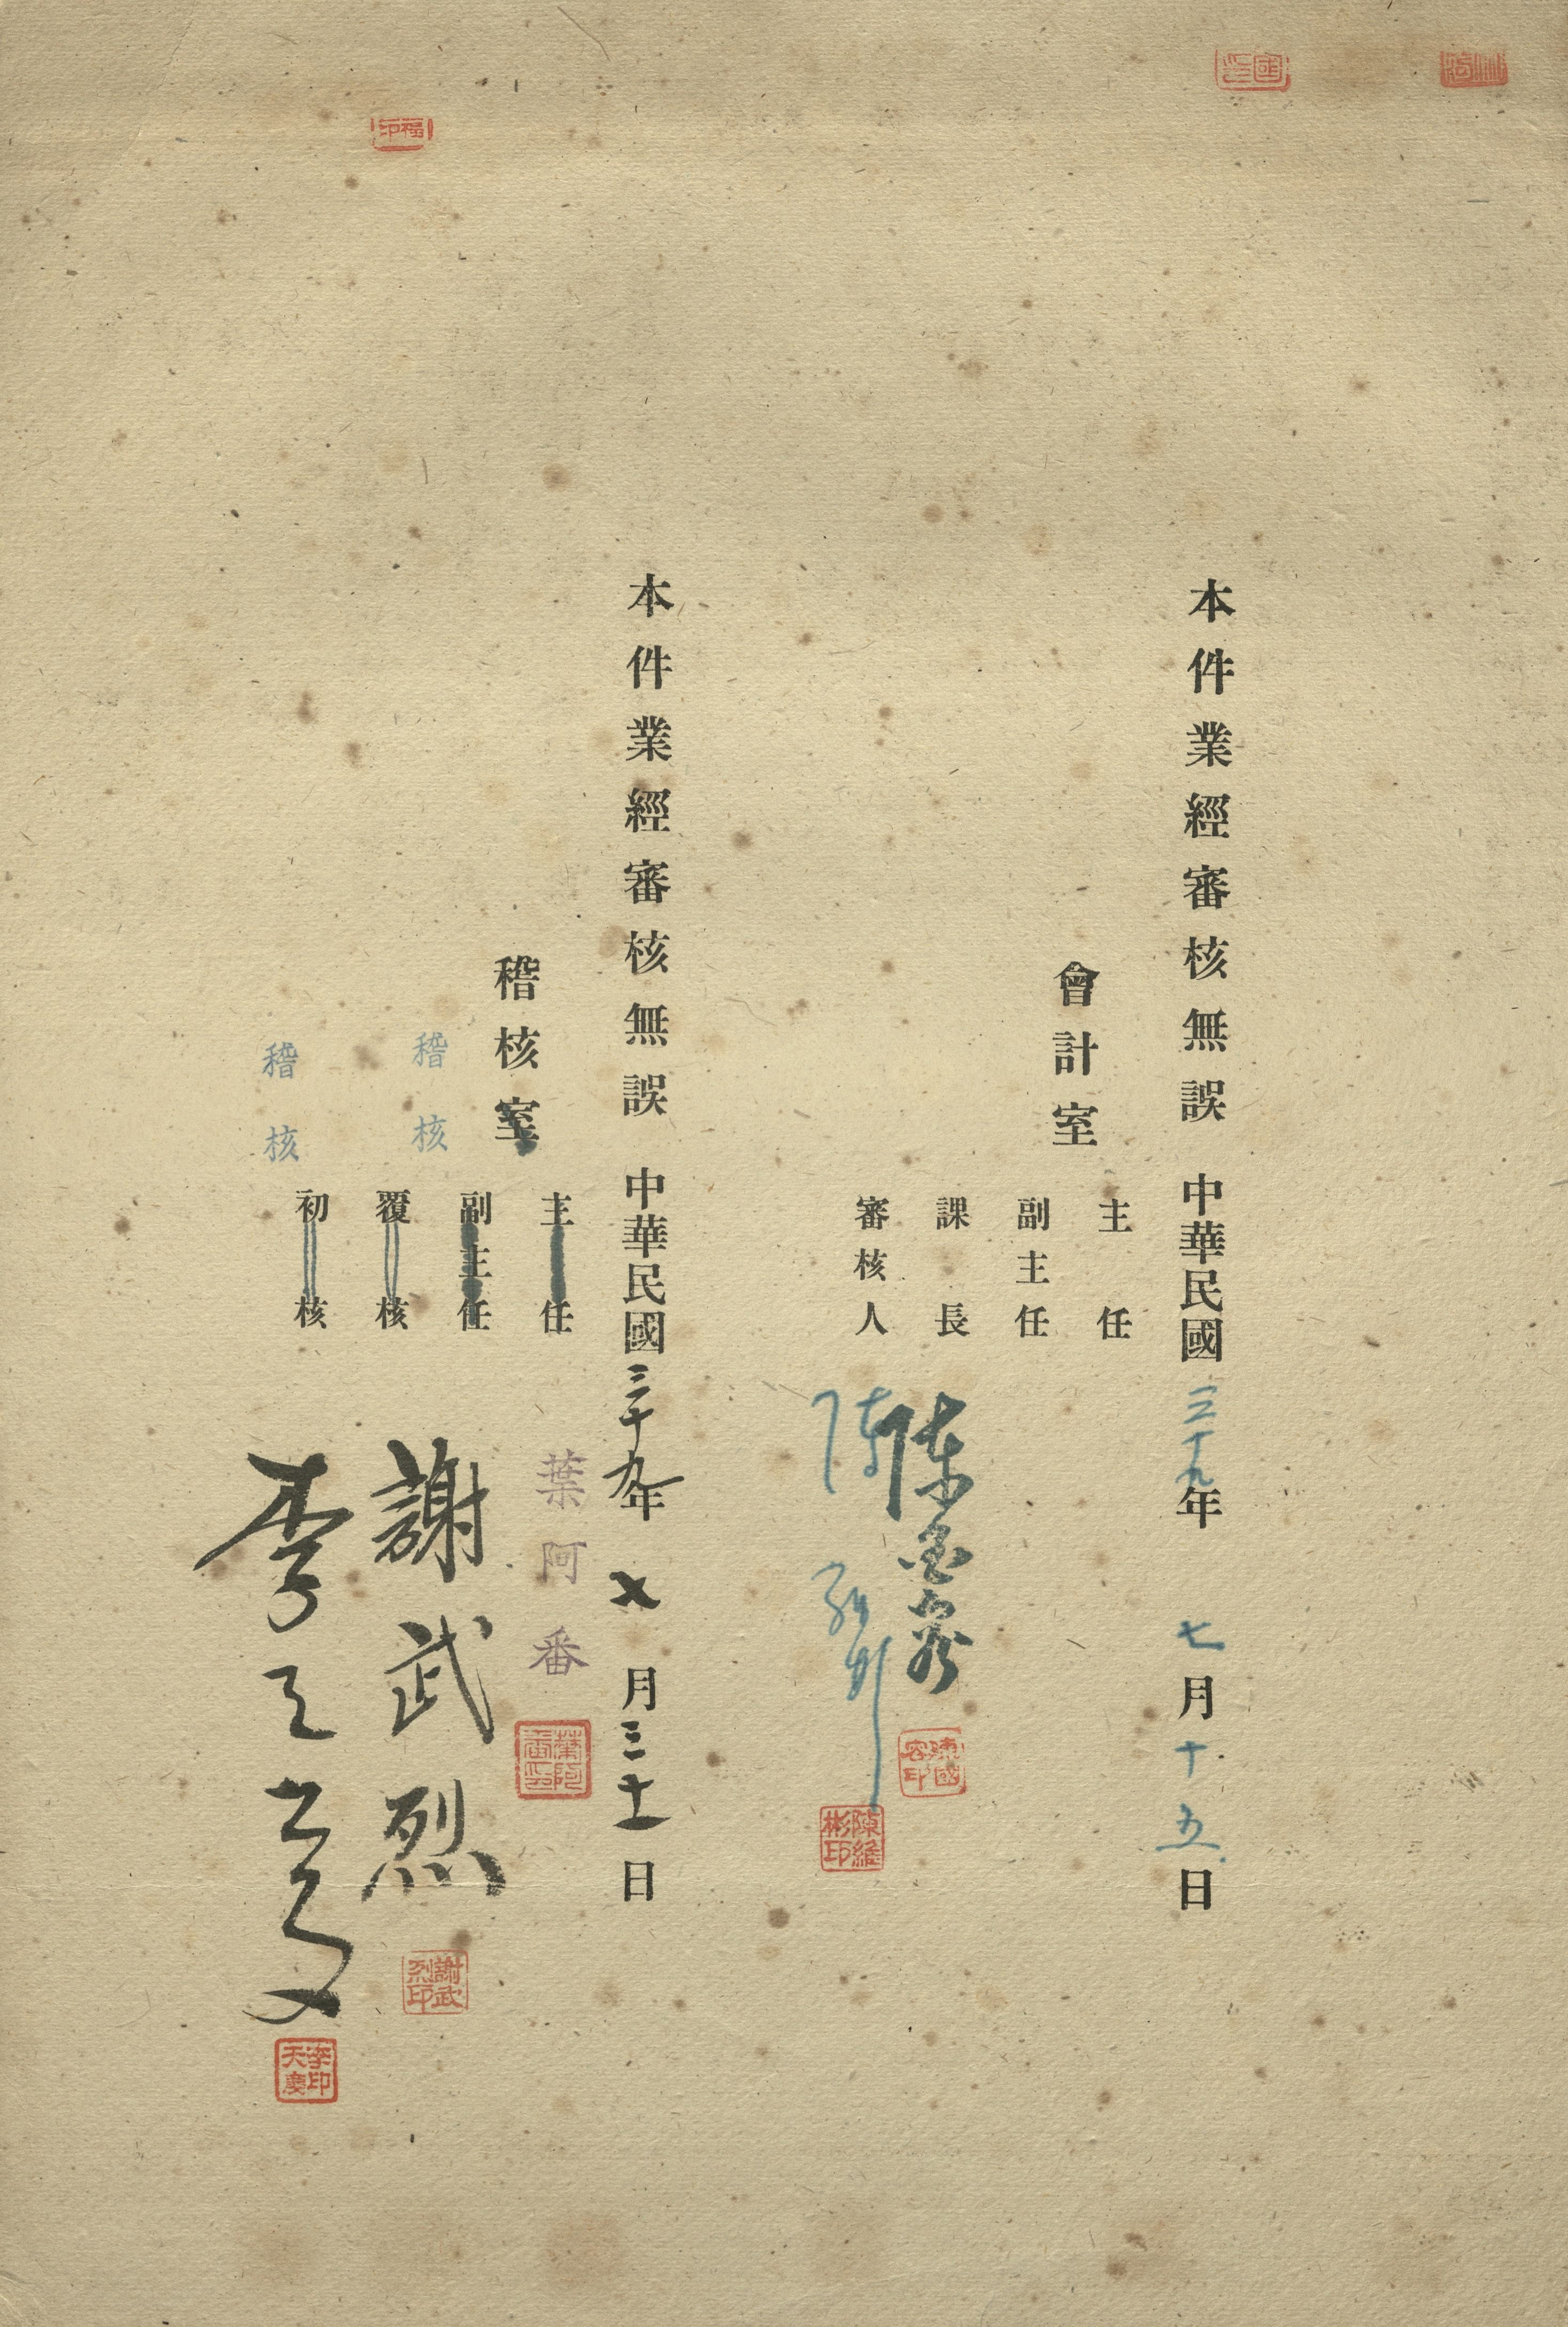 本件業經審核無誤 中華民國三十九年七月十五日
會計室
主任
副主任
課長 陳國容
陳國容印
審核人 陳維彬
陳維彬印
本件業經審核無誤 中華民國三十九年七月三十一日
稽核室
主任 葉阿番
葉阿番印
副主任
稽核
覆核 謝武烈
謝武烈印
稽核
初核 李天慶
李天慶印